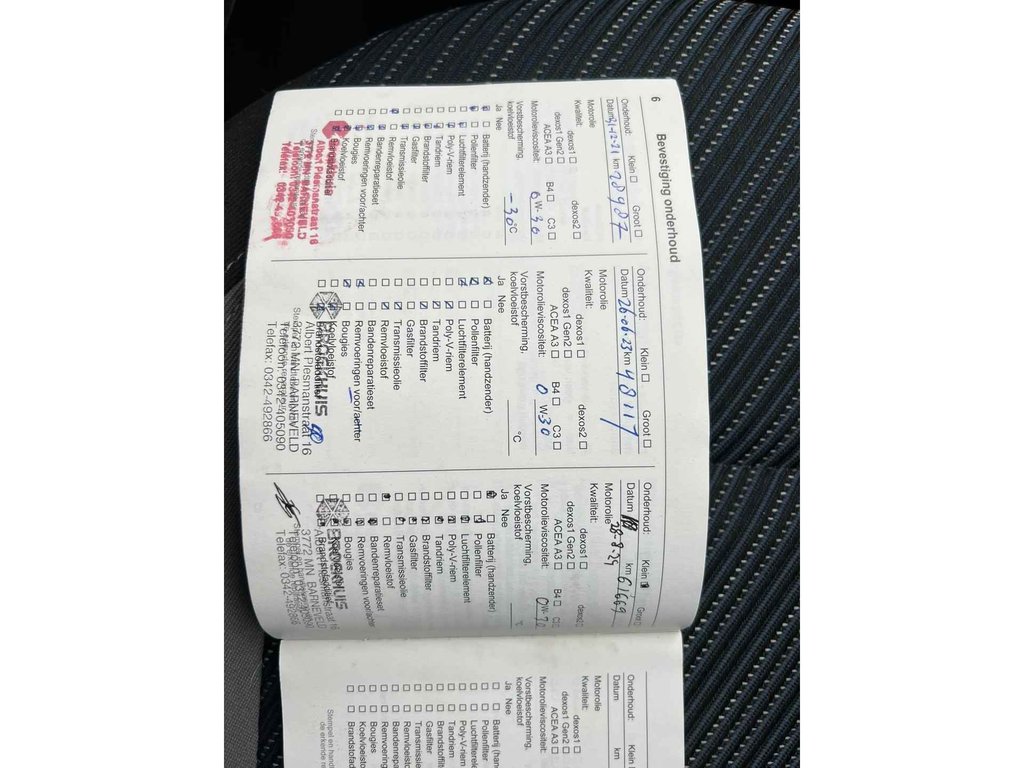 6
Bevestiging onderhoud
Onderhoud: Klein Groot
Datum 31-12-21 km 28987
Motorolie
Kwaliteit: dexos1 dexos2
dexos1 Gen2
ACEA A3 B4 C3
Motorolieviscositeit: 0 W-30
Vorstbescherming,
koelvloeistof -30 °C
Ja Nee
Batterij (handzender)
Pollenfilter
Luchtfilterelement
Poly-V-riem
Tandriem
Brandstoffilter
Gasfilter
Transmissieolie
Remvloeistof
Bandenreparatieset
Remvoeringen voor/achter
Bougies
Koelvloeistof
Albert Plesmanstraat 16
3772 MN BARNEVELD
Telefoon: 0342-405090
Onderhoud: Klein Groot
Datum 26-06-23 km 48117
Motorolie
Kwaliteit: dexos1 dexos2
dexos1 Gen2
ACEA A3 B4 C3
Motorolieviscositeit: 0 W-30
Vorstbescherming,
koelvloeistof °C
Ja Nee
Batterij (handzender)
Pollenfilter
Luchtfilterelement
Poly-V-riem
Tandriem
Brandstoffilter
Gasfilter
Transmissieolie
Remvloeistof
Bandenreparatieset
Remvoeringen voor/achter
Bougies
Koelvloeistof
BROEKHUIS
Albert Plesmanstraat 16
3772 MN BARNEVELD
Telefoon: 0342-405090
Telefax: 0342-492866
Onderhoud: Klein Groot
Datum 28-8-24 km 61669
Motorolie
Kwaliteit: dexos1 dexos2
dexos1 Gen2
ACEA A3 B4
Motorolieviscositeit:
Vorstbescherming,
koelvloeistof
Ja Nee
Batterij (handzender)
Pollenfilter
Luchtfilterelement
Poly-V-riem
Tandriem
Brandstoffilter
Gasfilter
Transmissieolie
Remvloeistof
Bandenreparatieset
Remvoeringen voor/achter
Bougies
BROEKHUIS
3772 MN BARNEVELD
Onderhoud: Klein
Datum km
Motorolie
Kwaliteit: dexos1
dexos1 Gen2
ACEA A3
Motorolieviscositeit:
Vorstbescherming,
koelvloeistof
Ja Nee
Batterij (han
Pollenfilter
Luchtfilterele
Poly-V-riem
Tandriem
Brandstoffilt
Gasfilter
Transmissi
Remvloeist
Bandenrep
Remvoering
Bougies
Koelvloeist
Brandstofad
Stempel en handt
de erkende re